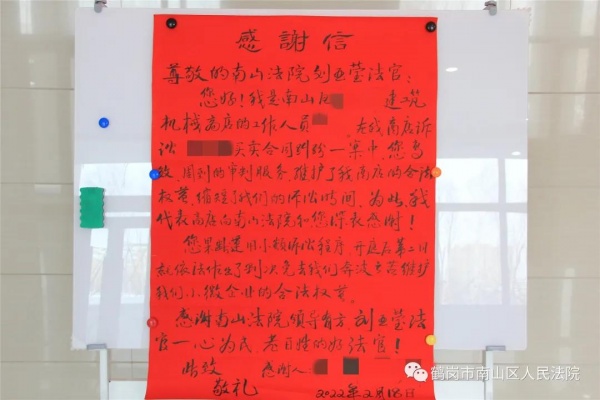 感謝信
尊敬的南山法院刘亚莹法官:
您好!我是南山区 建筑
机械商店的工作人员 ,在我商店诉
讼 买卖合同纠纷一案中,您高
效、周到的审判服务,维护了我商店的合法
权益,缩短了我们的诉讼时间,为此,我
代表商店向南山法院和您深表感谢!
您果断适用小额诉讼程序,开庭后第二日
就依法作出了判决免去我们奔波之苦维护
我们小微企业的合法权益。
感谢南山法院领导有方,刘亚莹法
官一心为民,老百姓的好法官!
此致 感谢人
敬礼 2022年2月18日
鹤岗市南山区人民法院